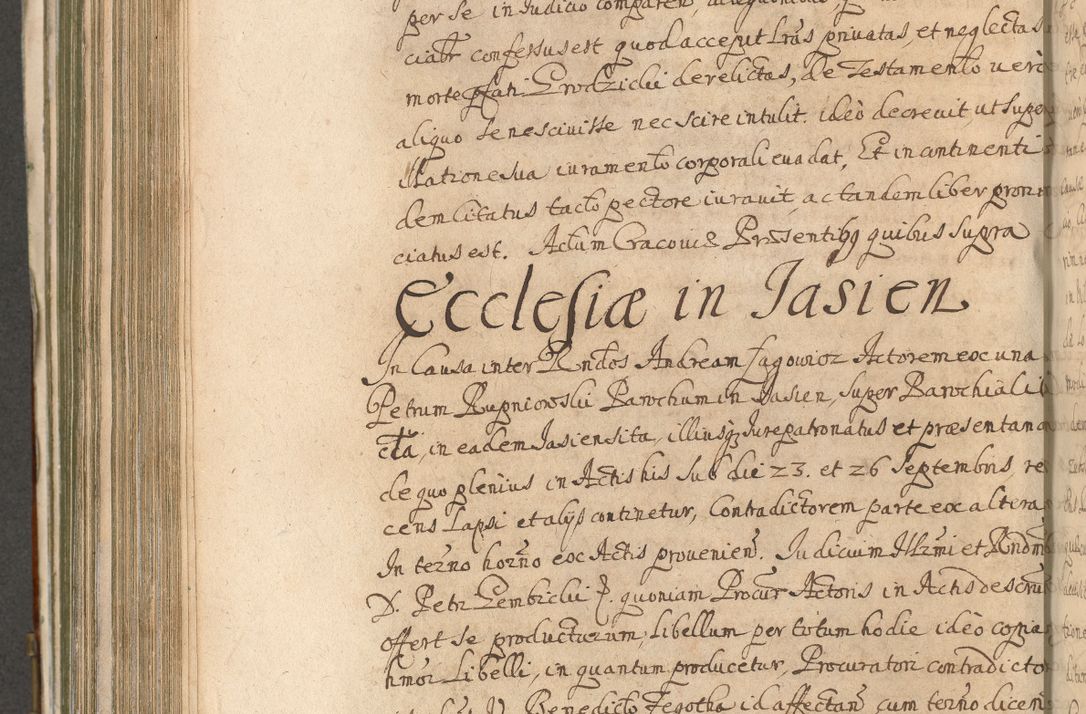 per se in Iudicio comparen,
ciatr confessus est quod acceperit Lras privatas, et neglectas
morte pfati Grodzicki derelictas, de Testamento vero
aliquo se nescivisse nec scire intulit. ideo decrevit ut super
illatione sua iuramento corporali evadat, Et in continenti
dem citatus tacto pectore iuravit, ac tandem liber pronun
ciatus est. Actum Cracoviæ Præsentibq quibus supra
Ecclesiæ in Jasien
In Causa inter Rndos Andream Actorem ex una
Petrum Rupniowski Parochum in Jasien, super Parochiali
cta, in eadem Jasien sita, illiusq Iurepatronatus et præsentan
de quo plenius in Actis his sub die 23. et 26 Septembris, re
cens lapsi et alijs continetur, Contradictorem parte ex altera
In termno horno ex Actis provenien. Iudicium Illrmi et Rndm
D. Petri Gembicki P. quoniam Procur Actoris in Actis descrip
offert se producturum, Libellum per totum hodie ideo copia
hmoi Libelli, in quantum producetur, Procuratori contradicto
Benedicto Zegotha id affectan cum termo dicen